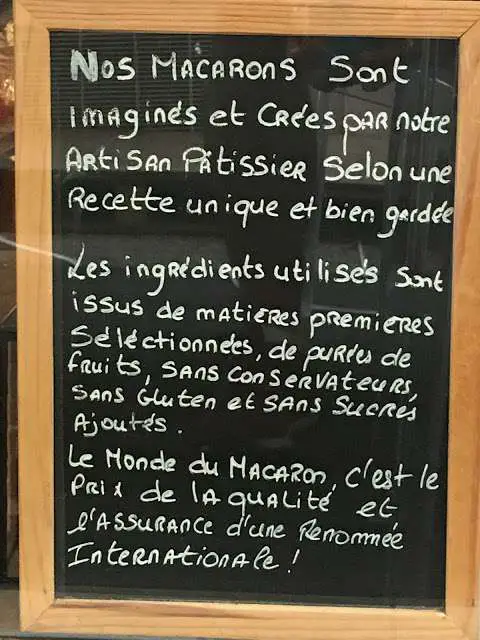 Nos Macarons Sont
imaginés et Créés par notre
Artisan Pâtissier Selon une
Recette unique et bien gardée
Les ingrédients utilisés sont
issus de matieres premieres
Séléctionnées, de purées de
fruits, sans conservateurs,
sans Gluten et sans Sucres
Ajoutés.
Le Monde du Macaron, c'est le
Prix de la qualité et
l'assurance d'une Renommée
Internationale !